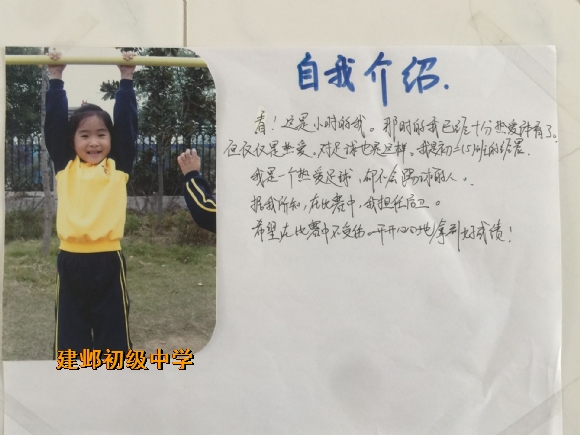 自我介绍.
看！这是小时的我。那时的我已经十分热爱体育了。
但仅仅是热爱，对足球也是这样。我是初一15班的
我是一个热爱足球，却不会踢球的人。
据我所知，在比赛中，我担任后卫。
希望在比赛中不受伤 开开心心地拿到好成绩！
建邺初级中学